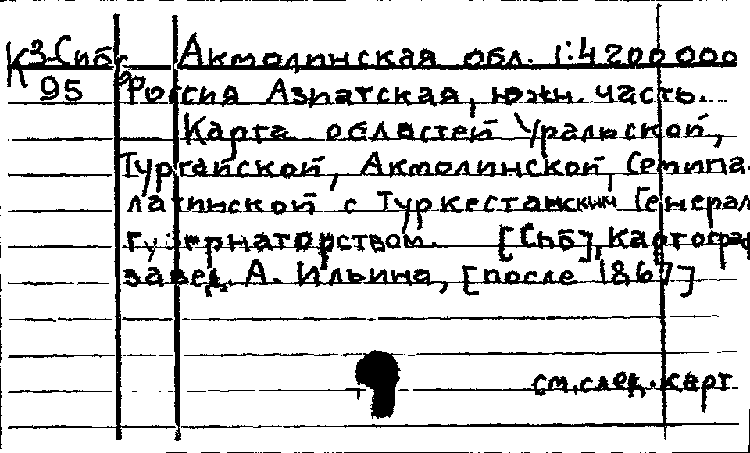 К3-Сиб Акмолинская обл. 1:4200000
95 Россия Азиатская, южн. часть.
Карта областей Уральской,
Тургайской, Акмолинской, Семипа-
латинской с Туркестанским Генерал
губернаторством. [Спб], Картограф
завед. А. Ильина, [после 1867]
см. след. карт